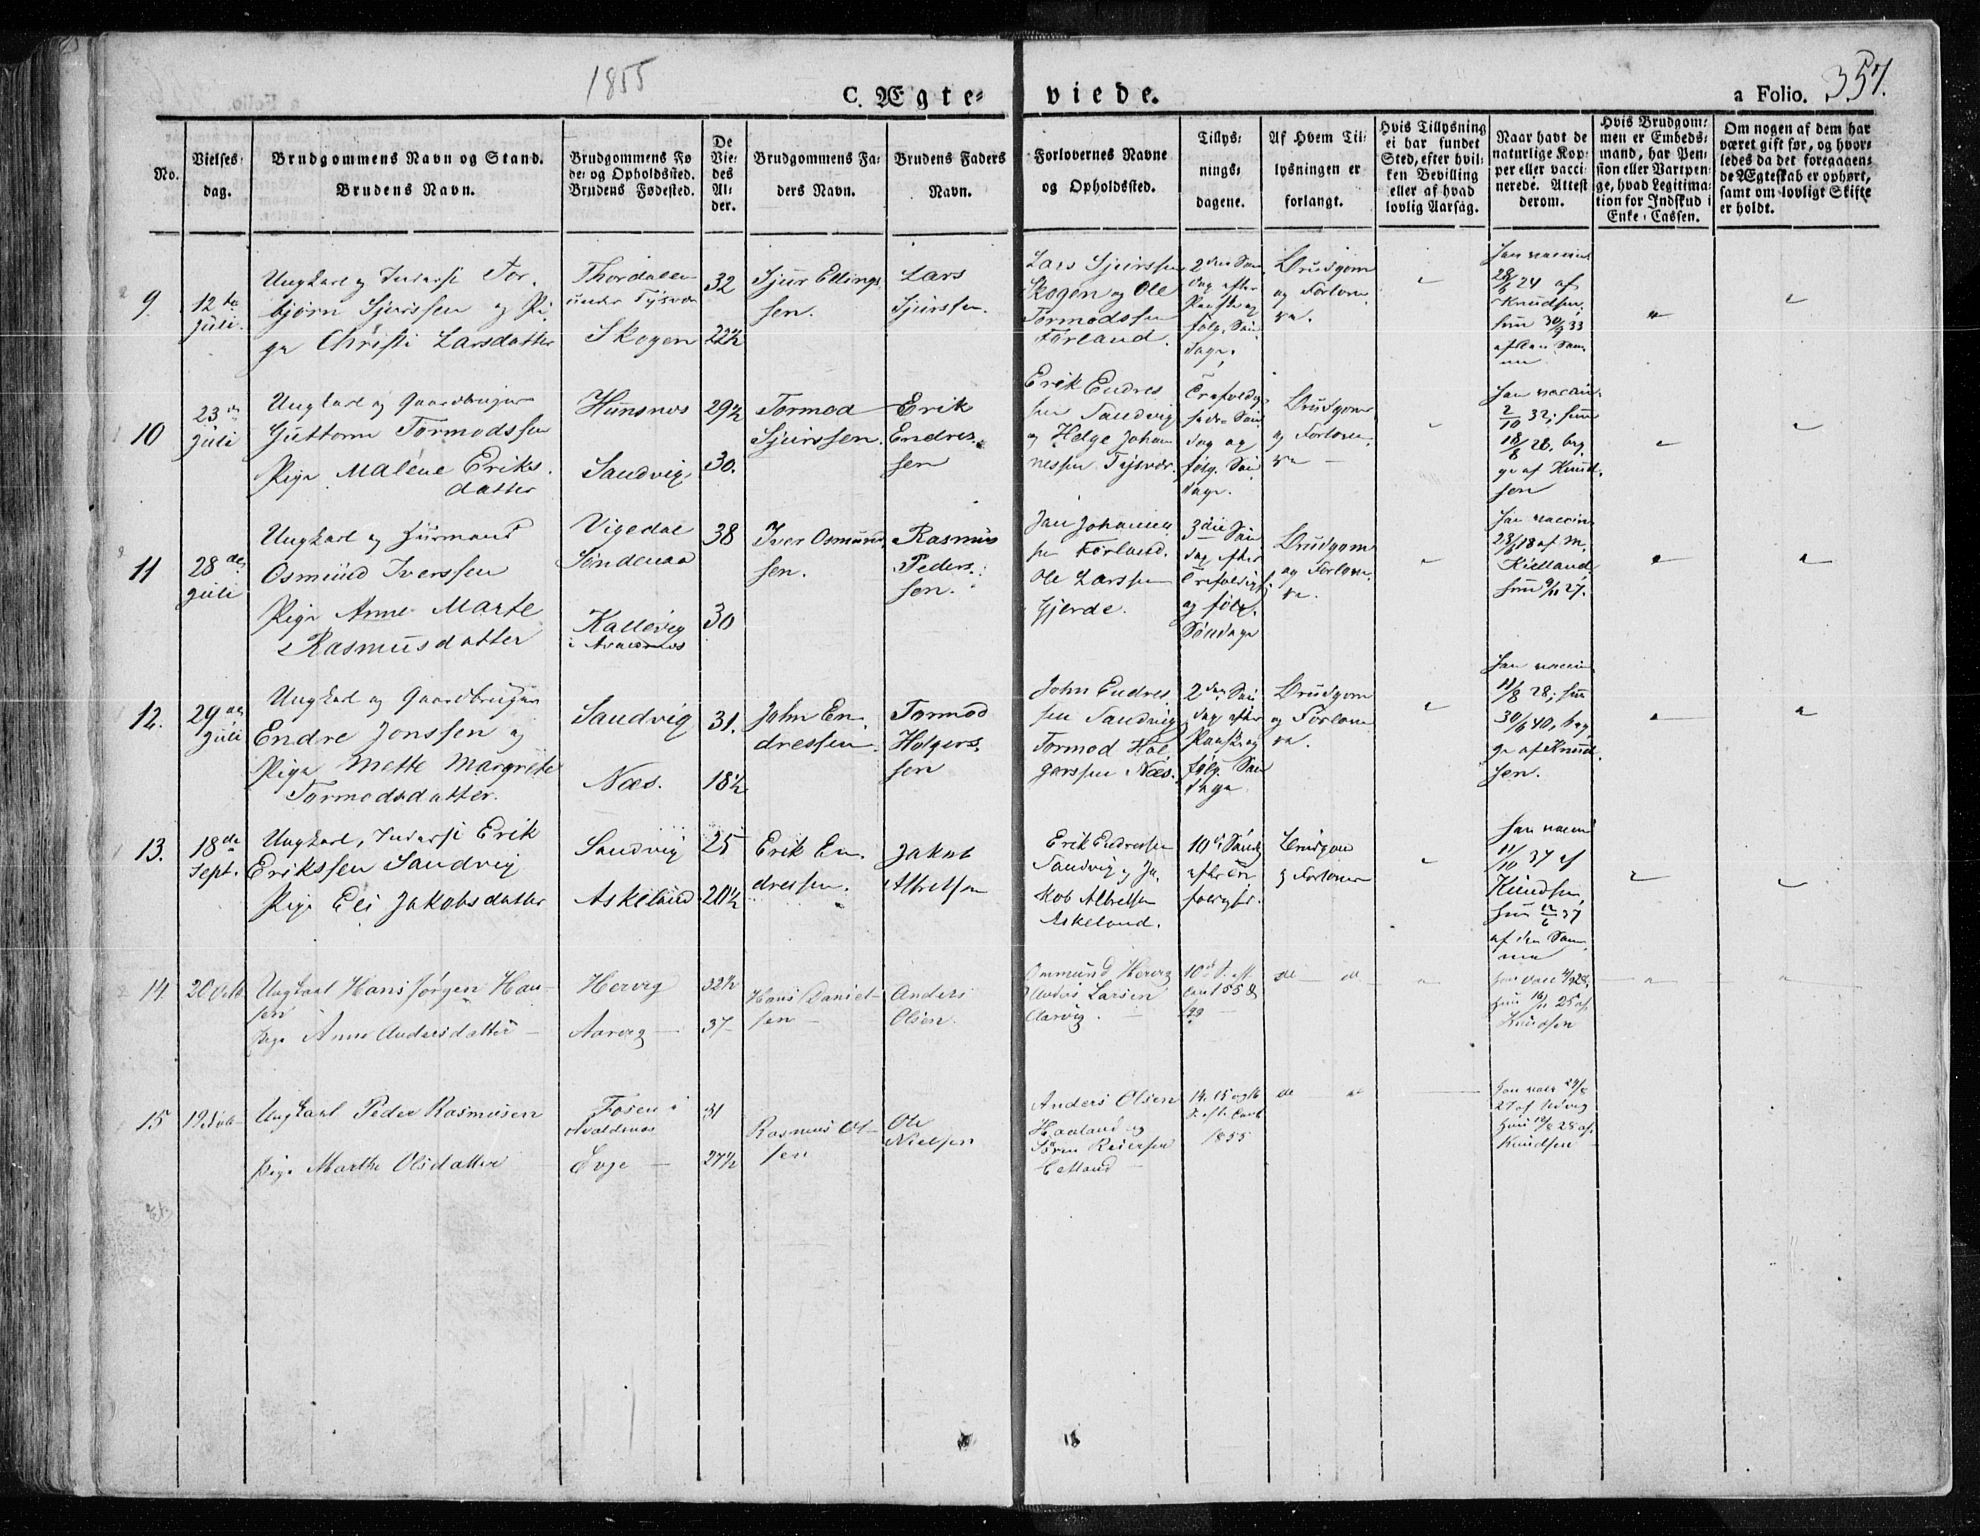 1855
C. Ægte-
viede.
a Folio. 357.
No.
Vielses-
dag.
Brudgommens Navn og Stand.
Brudens Navn.
Brudgommens Fø
de- og Opholdssted.
Brudens Fødested.
De
Vie-
des
Al-
der.
Brudgommens Fa-
ders Navn.
Brudens Faders
Navn.
Forlovernes Navne
og Opholdssted.
Tillys-
nings-
dagene.
Af Hvem Til-
lysningen er
forlangt.
Hvis Tillysning
ei har fundet
Sted, efter hvil-
ken Bevilling
eller af hvad
lovlig Aarsag.
Naar havt de
naturlige Kop-
per eller vacci-
nerede. Attest
derom.
Hvis Brudgom-
men er Embeds-
mand, har Pen-
sion eller Vartpen-
ge, hvad Legitima-
tion for Indskud i
Enke-Cassen.
Om nogen af dem har
været gift før, og hvor-
ledes da det foregaaen-
de Ægteskab er ophørt,
samt om lovligt Skifte
er holdt.
9.
12te
Juli.
Ungkarl og Inderst Tor-
bjørn Sjurssen og Pi-
ge Christi Larsdatter
Thordalen
under Tysvær
Skogen
32
22½
Sjur Ellings
sen.
Lars
Sjurssen.
Lars Sjurssen
Skogen og Ole
Tormodssen
Førland.
2den Søn
dag efter
Paaske og
følg. Søn
dage.
Brudgom
og Forlove
re.
Han vaccin.
28/6 24 af
Knudsen;
hun 30/9 33
af den Sam
me
10
23de
Juli
Ungkarl og Gaardbruger
Guttorm Tormodssen
Pige Malene Eriks-
datter
Hunsnes
Sandvig
29½
30.
Tormod
Sjurssen.
Erik
Endres-
sen
Erik Endres
sen Sandvig
og Helge Johan
nessen Tysvær.
Trefoldig-
heds Søn
dag og
følg. Søn
dage.
Brudgom
og Forlove-
re
Han vaccin.
2/10 32; hun
18/8 28, beg-
ge af Knud-
sen
11
28de
Juli
Ungkarl og Huusmand
Osmund Iverssen
Pige Anne Marte
Rasmusdatter
Vigedal
Søndenaa
Kallevig
i Avaldsnes
38
30
Iver Osmund
sen.
Rasmus
Peders-
sen.
Jan Johannes
sen Førland.
Ole Larssen
Gjerde.
3die Søn
dag efter
Trefoldigh.
og følg.
Søndage
Brudgom
og Forlove-
re.
Han vaccin
23/6 18 af M.
Kielland
hun 9/11 27.
12.
29de
Juli
Ungkarl og Gaardbruger
Endre Jonssen og
Pige Mette Margrete
Tormodsdatter.
Sandvig
Næs.
31.
18½
John En-
dressen.
Tormod
Holgers-
sen
John Endres
sen Sandvig
Tormod Hol
gerssen Næs.
2den Søn
dag efter
Paaske og
følg. Søn
dage
Brudgom
og Forlove
re.
Han vaccin
11/8 28; hun
30/6 40, beg
ge af Knud-
sen.
13.
18de
Sept.
Ungkarl, Inderst Erik
Erikssen Sandvig
Pige Eli Jakobsdatter
Sandvig
Askeland
25
20½
Erik En-
dressen.
Jakob
Albretsen
Erik Endressen
Sandvig og Ja-
kob Albretsen
Askeland.
10de Sønd.
efter Tre
foldighd.
Brudgom
og Forlover
Han vaccin
11/10 37 af
Knudsen,
hun 12/6 37
af den Sam-
me
14.
20 Octb
Ungkarl Hans Jørgen Han-
sen
Pige Anne Andersdatter
Hervig
Aarvig
32½
37
Hans Daniel-
sen
Anders
Olsen.
Ommund Hervig
Anders Larsen
Aarvig.
de
de
Knudsen
15
Ungkarl Peder Rasmusen
Pige Marthe Olsdatter
Fosen i
Avaldsnes
Evje
31
27½
Rasmus Ol-
sen
Ole
Nielsen
Anders Olsen
Haaland og
Sören Reiersen
14. 15 og 16
1855
de
Knudsen